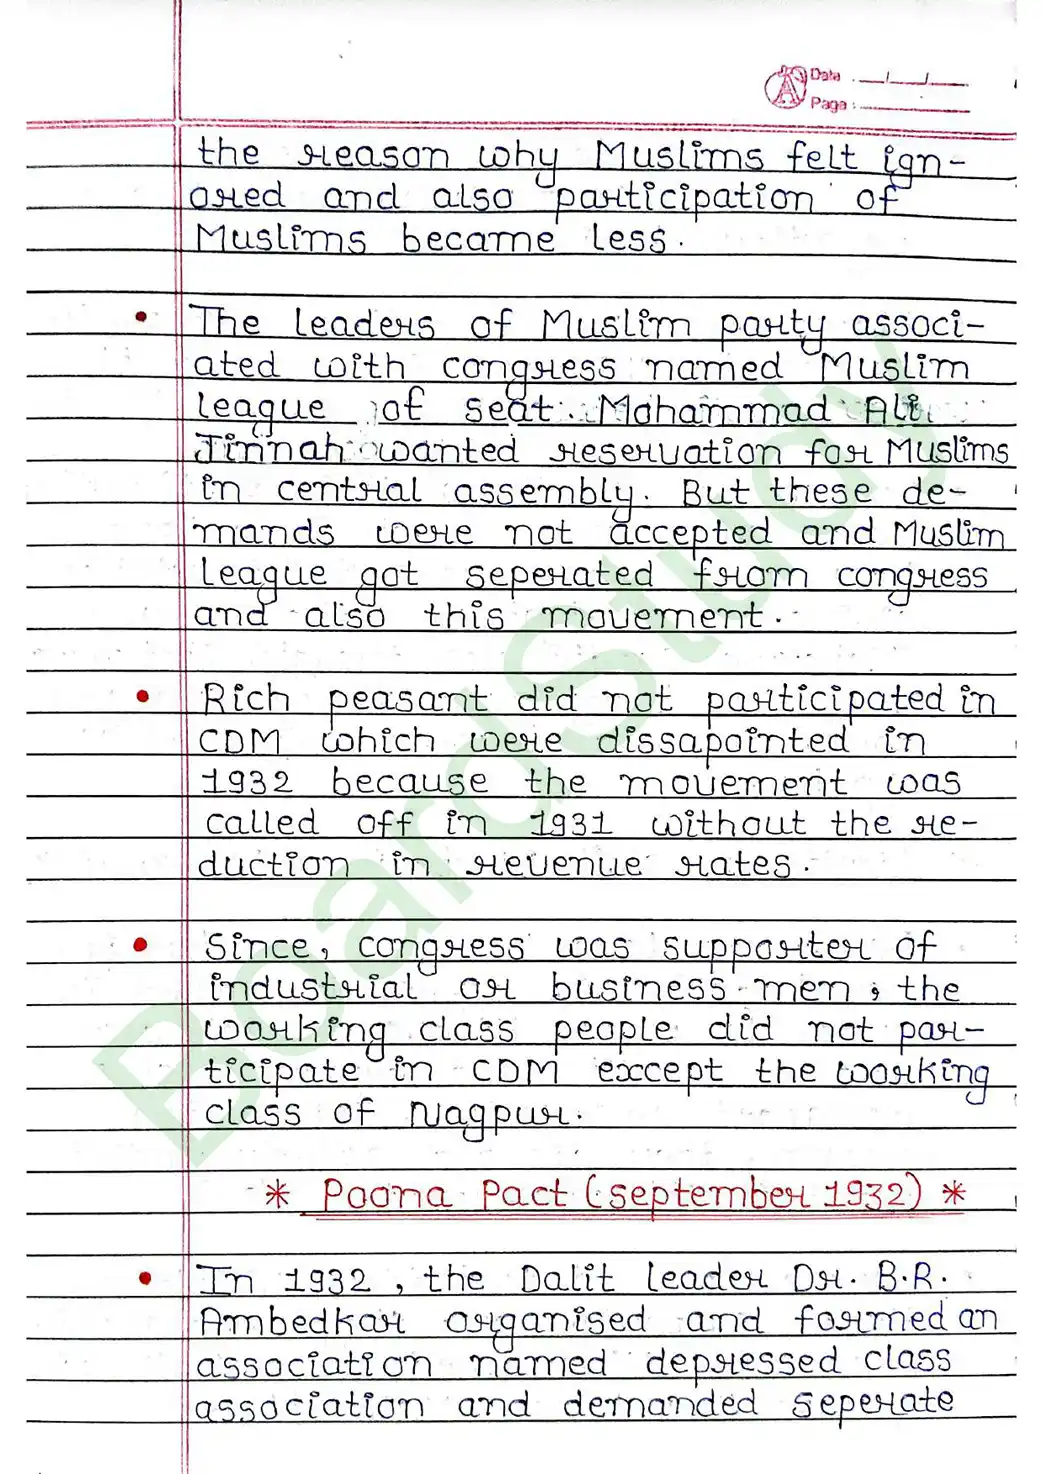 Date : __/__/__
Page :
the reason why Muslims felt ign-
ored and also participation of
Muslims became less.
• The leaders of Muslim party associ-
ated with congress named Muslim
league of seat. Mohammad Ali
Jinnah wanted reservation for Muslims
in central assembly. But these de-
mands were not accepted and Muslim
league got seperated from congress
and also this movement.
• Rich peasant did not participated in
CDM which were dissapointed in
1932 because the movement was
called off in 1931 without the re-
duction in revenue rates.
• Since, congress was supporter of
industrial or business men, the
working class people did not par-
ticipate in CDM except the working
class of Nagpur.
* Poona Pact (september 1932) *
• In 1932, the Dalit leader Dr. B.R.
Ambedkar organised and formed an
association named depressed class
association and demanded seperate
Board Study